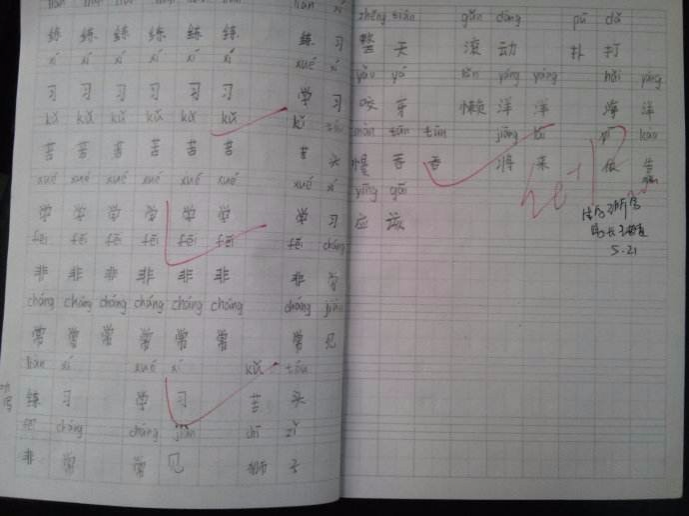 练 练 练 练 练 练 练 习
xí xí xí xí xí xí xué xí
习 习 习 习 习 习 学 习
kǔ kǔ kǔ kǔ kǔ kǔ kǔ
苦 苦 苦 苦 苦 苦 苦 头
xué xué xué xué xué xué xué xí
学 学 学 学 学 学 学 习
fēi fēi fēi fēi fēi fēi fēi cháng
非 非 非 非 非 非 非 常
cháng cháng cháng cháng cháng cháng cháng jiàn
常 常 常 常 常 常 常 见
xí xué xí kǔ tóu
练 习 学 习 苦 头
fēi cháng cháng jiàn shī zǐ
非 常 常 见 狮 子
zhěng tiān gǔn dòng pū dǎ
整 天 滚 动 扑 打
yǎo yá lǎn yáng yáng hǎi yáng
咬 牙 懒 洋 洋 海 洋
màn tūn tūn jiāng
慢 吞 吞 将 来
yīng gāi
应 该
5-21